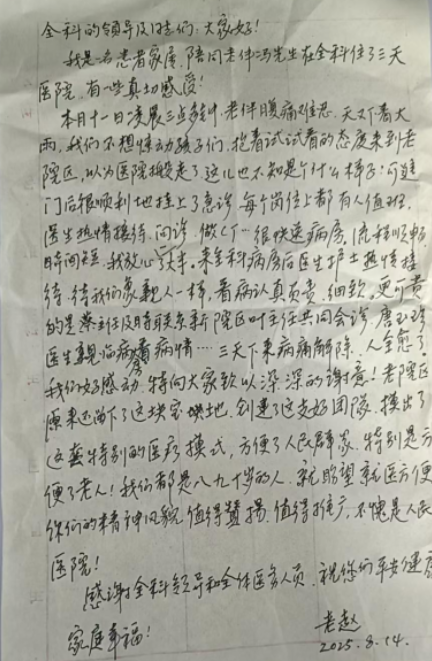 全科的领导及同志们：大家好！
我是一名患者家属，陪同老伴冯先生在全科住了三天
医院，有一些真切感受！
本月十一日凌晨三点多钟，老伴腹痛难忍，天又下着大
雨，我们不想惊动孩子们，抱着试试看的态度来到老
院区，以为医院搬走了这儿也不知是个什么样子；可进
门后很顺利地挂上了急诊，每个岗位上都有人值班，
医生热情接待，问诊，做CT…很快送病房。流程顺畅，
时间短，我放心许多。来全科病房后医生护士热情接
待，待我们象亲人一样，看病认真负责，细致。更可贵
的是蔡主任及时联系新院区叶主任共同会诊，唐
医生亲临病房看病情…三天下来病痛解除，人全愈了。
我们好感动，特向大家致以深深的谢意！老院区
原来还留下了这块宝地，创建了这支好团队，摸出了
这套特别的医疗模式，方便了人民群众，特别是方
便了老人！我们都是八九十岁的人，就盼望就医方便
你们的精神风貌值得赞扬，值得推广，不愧是人民
医院！
感谢全科领导和全体医务人员，祝您们平安健康
家庭幸福！
老赵
2025.8.14.